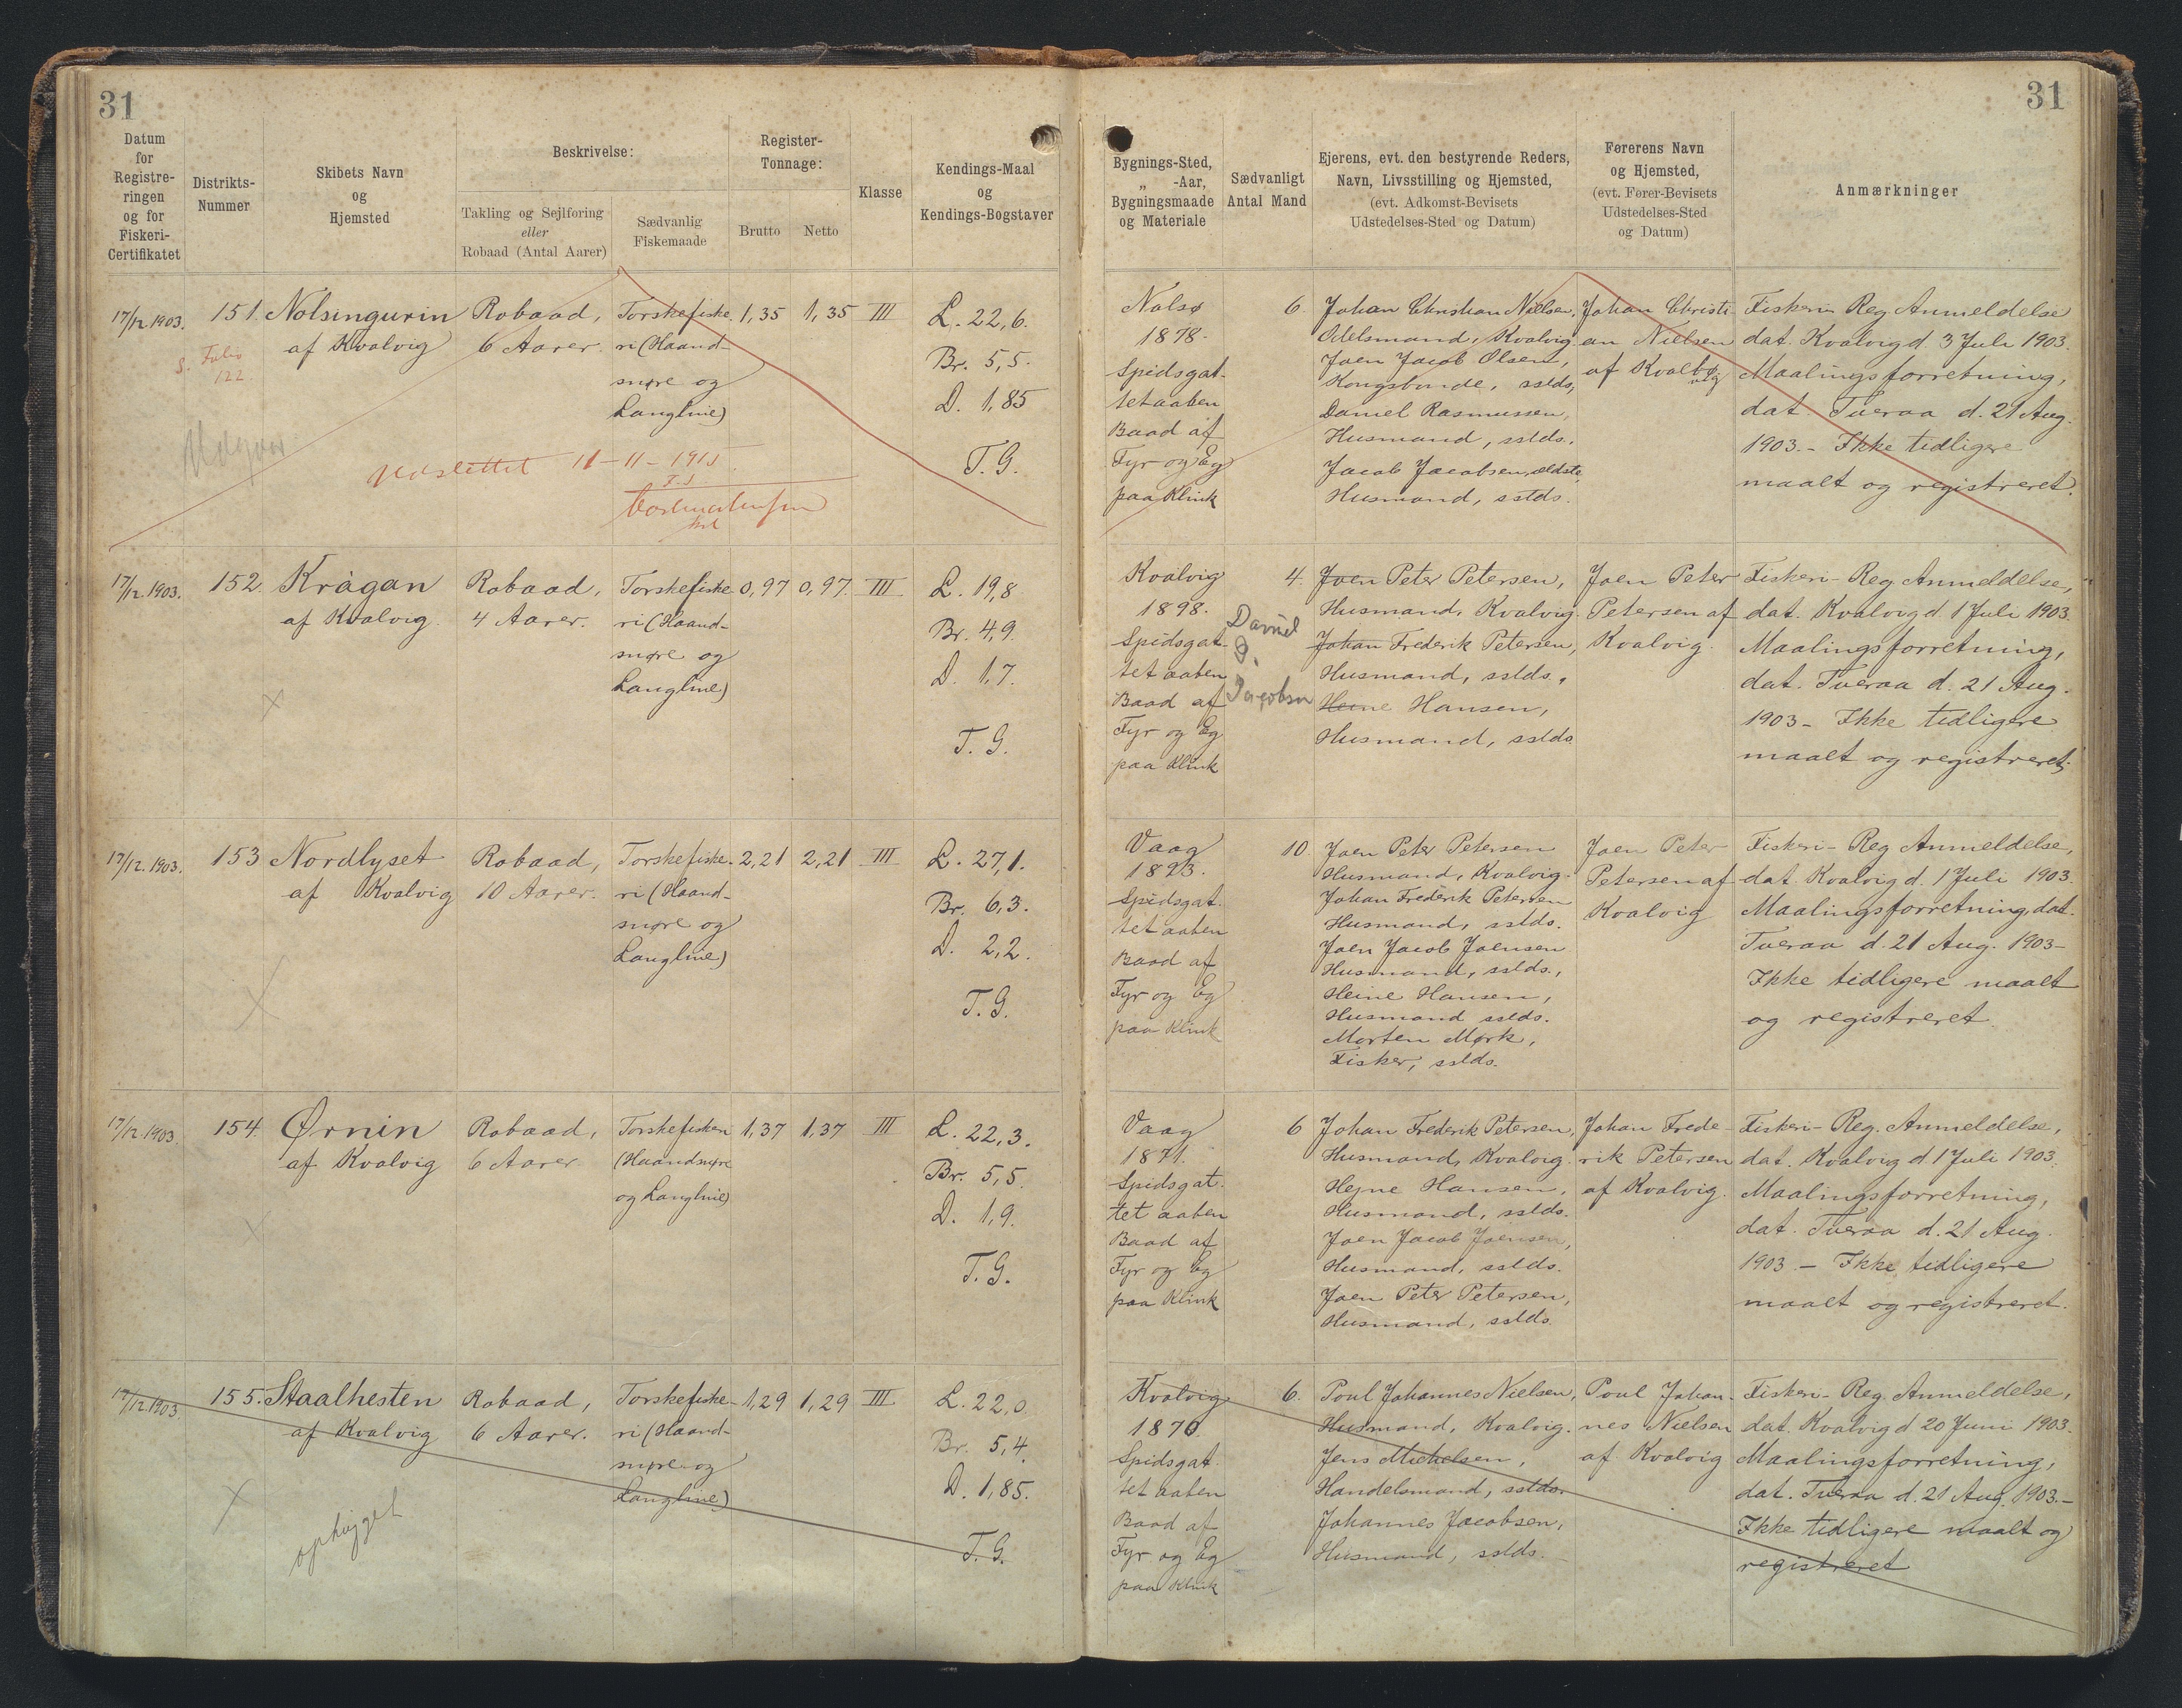 31
31
Datum
for
Registre-
ringen
og for
Fiskeri-
Certifikatet
Distrikts-
Nummer
Skibets Navn
og
Hjemsted
Beskrivelse:
Takling og Sejlføring
eller
Robaad (Antal Aarer)
Sædvanlig
Fiskemaade
Register-
Tonnage:
Brutto
Netto
Klasse
Kendings-Maal
og
Kendings-Bogstaver
Bygnings-Sted,
„ -Aar,
Bygningsmaade
og Materiale
Sædvanligt
Antal Mand
Ejerens, evt. den bestyrende Reders,
Navn, Livsstilling og Hjemsted,
(evt. Adkomst-Bevisets
Udstedelses-Sted og Datum)
Førerens Navn
og Hjemsted,
(evt. Fører-Bevisets
Udstedelses-Sted
og Datum)
Anmærkninger
17/12.1903.
S. Folio
122.
151.
Nolsingurin
af Kvalvig
Robaad,
6 Aarer.
Torskefiske-
ri (Haand-
snøre og
Langline)
1,35
1,35
III
L. 22,6.
Br. 5,5.
D. 1,85
T.G.
Udgaar
Udslettet 11-11-191
Nolsø
1878.
Spidsgat-
tet aaben
Baad af
Fyr og Eg
paa Klink
6.
Johan Christian Nielsen,
Odelsmand, Kvalvig.
Joen Jacob Olsen,
Kongsbonde, sstds,
Daniel Rasmussen,
Husmand, sstds.
Jacob Jacobsen, ældste,
Husmand, sstds.
Johan Christi-
an Nielsen
af Kvalbø
vig
Fiskeri- Reg. Anmeldelse
dat. Kvalvig d. 3 Juli 1903.
Maalingsforretning,
dat. Tveraa d. 21 Aug.
1903. - Ikke tidligere
maalt og registreret.
17/12.1903.
152.
Krágan
af Kvalvig.
Robaad,
4 Aarer.
Torskefiske
ri (Haand-
snøre og
Langline)
0,97
0,97.
III
L. 19,8
Br. 4,9.
D. 1,7.
T.G.
Kvalvig
1898.
Spidsgat-
tet aaben
Baad af
Fyr og Eg
paa Klink
4.
Daniel
D.
Jacobsen
Joen Peter Petersen,
Husmand, Kvalvig.
Johan Frederik Petersen,
Husmand, sstds.,
Heine Hansen,
Husmand, sstds
Joen Peter
Petersen af
Kvalvig.
Fiskeri- Reg. Anmeldelse,
dat. Kvalvig d. 1 Juli 1903.
Maalingsforretning,
dat. Tveraa d. 21 Aug.
1903 - Ikke tidligere
maalt og registreret.
17/12.1903.
153
Nordlyset
af Kvalvig
Robaad,
10 Aarer.
Torskefiske-
ri (Haand-
snøre og
Langline)
2,21
2,21
III
L. 27,1.
Br. 6,3.
D. 2,2.
T.G.
Vaag
1893.
Spidsgat-
tet aaben
Baad af
Fyr og Eg
paa Klink
10.
Joen Peter Petersen
Husmand, Kvalvig.
Johan Frederik Petersen
Husmand, sstds.
Joen Jacob Joensen
Husmand, sstds.,
Heine Hansen,
Husmand sstds.
Morten Mørk,
Fisker, sstds.
Joen Peter
Petersen af
Kvalvig
Fiskeri- Reg Anmeldelse,
dat. Kvalvig d. 1 Juli 1903.
Maalingsforretning, dat.
Tveraa d. 21 Aug. 1903-
Ikke tidligere maalt
og registreret
17/12.1903.
154.
Ørnin
af Kvalvig
Robaad,
6 Aarer
Torskefiskeri
(Haandsnøre
og Langline)
1,37
1,37
III
L. 22,3.
Br. 5,5.
D. 1,9.
T.G.
Vaag
1871.
Spidsgat-
tet aaben
Baad af
Fyr og Eg
paa Klink
6
Johan Frederik Petersen,
Husmand, Kvalvig.
Hejne Hansen,
Husmand, sstds.
Joen Jacob Joensen,
Husmand, sstds.
Joen Peter Petersen,
Husmand, sstds.
Johan Frede-
rik Petersen
af Kvalvig.
Fiskeri- Reg. Anmeldelse,
dat. Kvalvig d. 1 Juli 1903.
Maalingsforretning,
dat. Tveraa d. 21 Aug.
1903 - Ikke tidligere
maalt og registreret.
17/12.1903.
155.
Staalhesten
af Kvalvig
Robaad,
6 Aarer.
Torskefiske-
ri (Haand-
snøre og
Langline)
1,29
1,29
III
L. 22,0
Br. 5,4.
D. 1,85.
T.G.
ophugget
Kvalvig
1870.
Spidsgat
tet aaben
Baad af
Fyr og Eg
paa Klink
6.
Poul Johannes Nielsen,
Husmand, Kvalvig.
Jens Michelsen,
Handelsmand, sstds.
Johannes Jacobsen,
Husmand, sstds.
Poul Johan-
nes Nielsen
af Kvalvig
Fiskeri- Reg. Anmeldelse,
dat. Kvalvig d 20 Juni 1903.
Maalingsforretning,
dat. Tveraa d. 21 Aug. 1903.-
Ikke tidligere maalt og
registreret